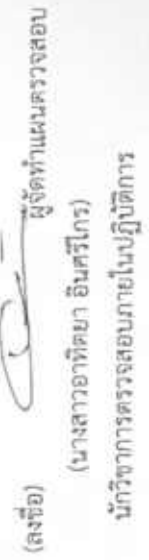 (ลงชื่อ) ผู้จัดทำแผนตรวจสอบ
(นางสาวอาทิตยา อินศรีไกร)
นักวิชาการตรวจสอบภายในปฏิบัติการ